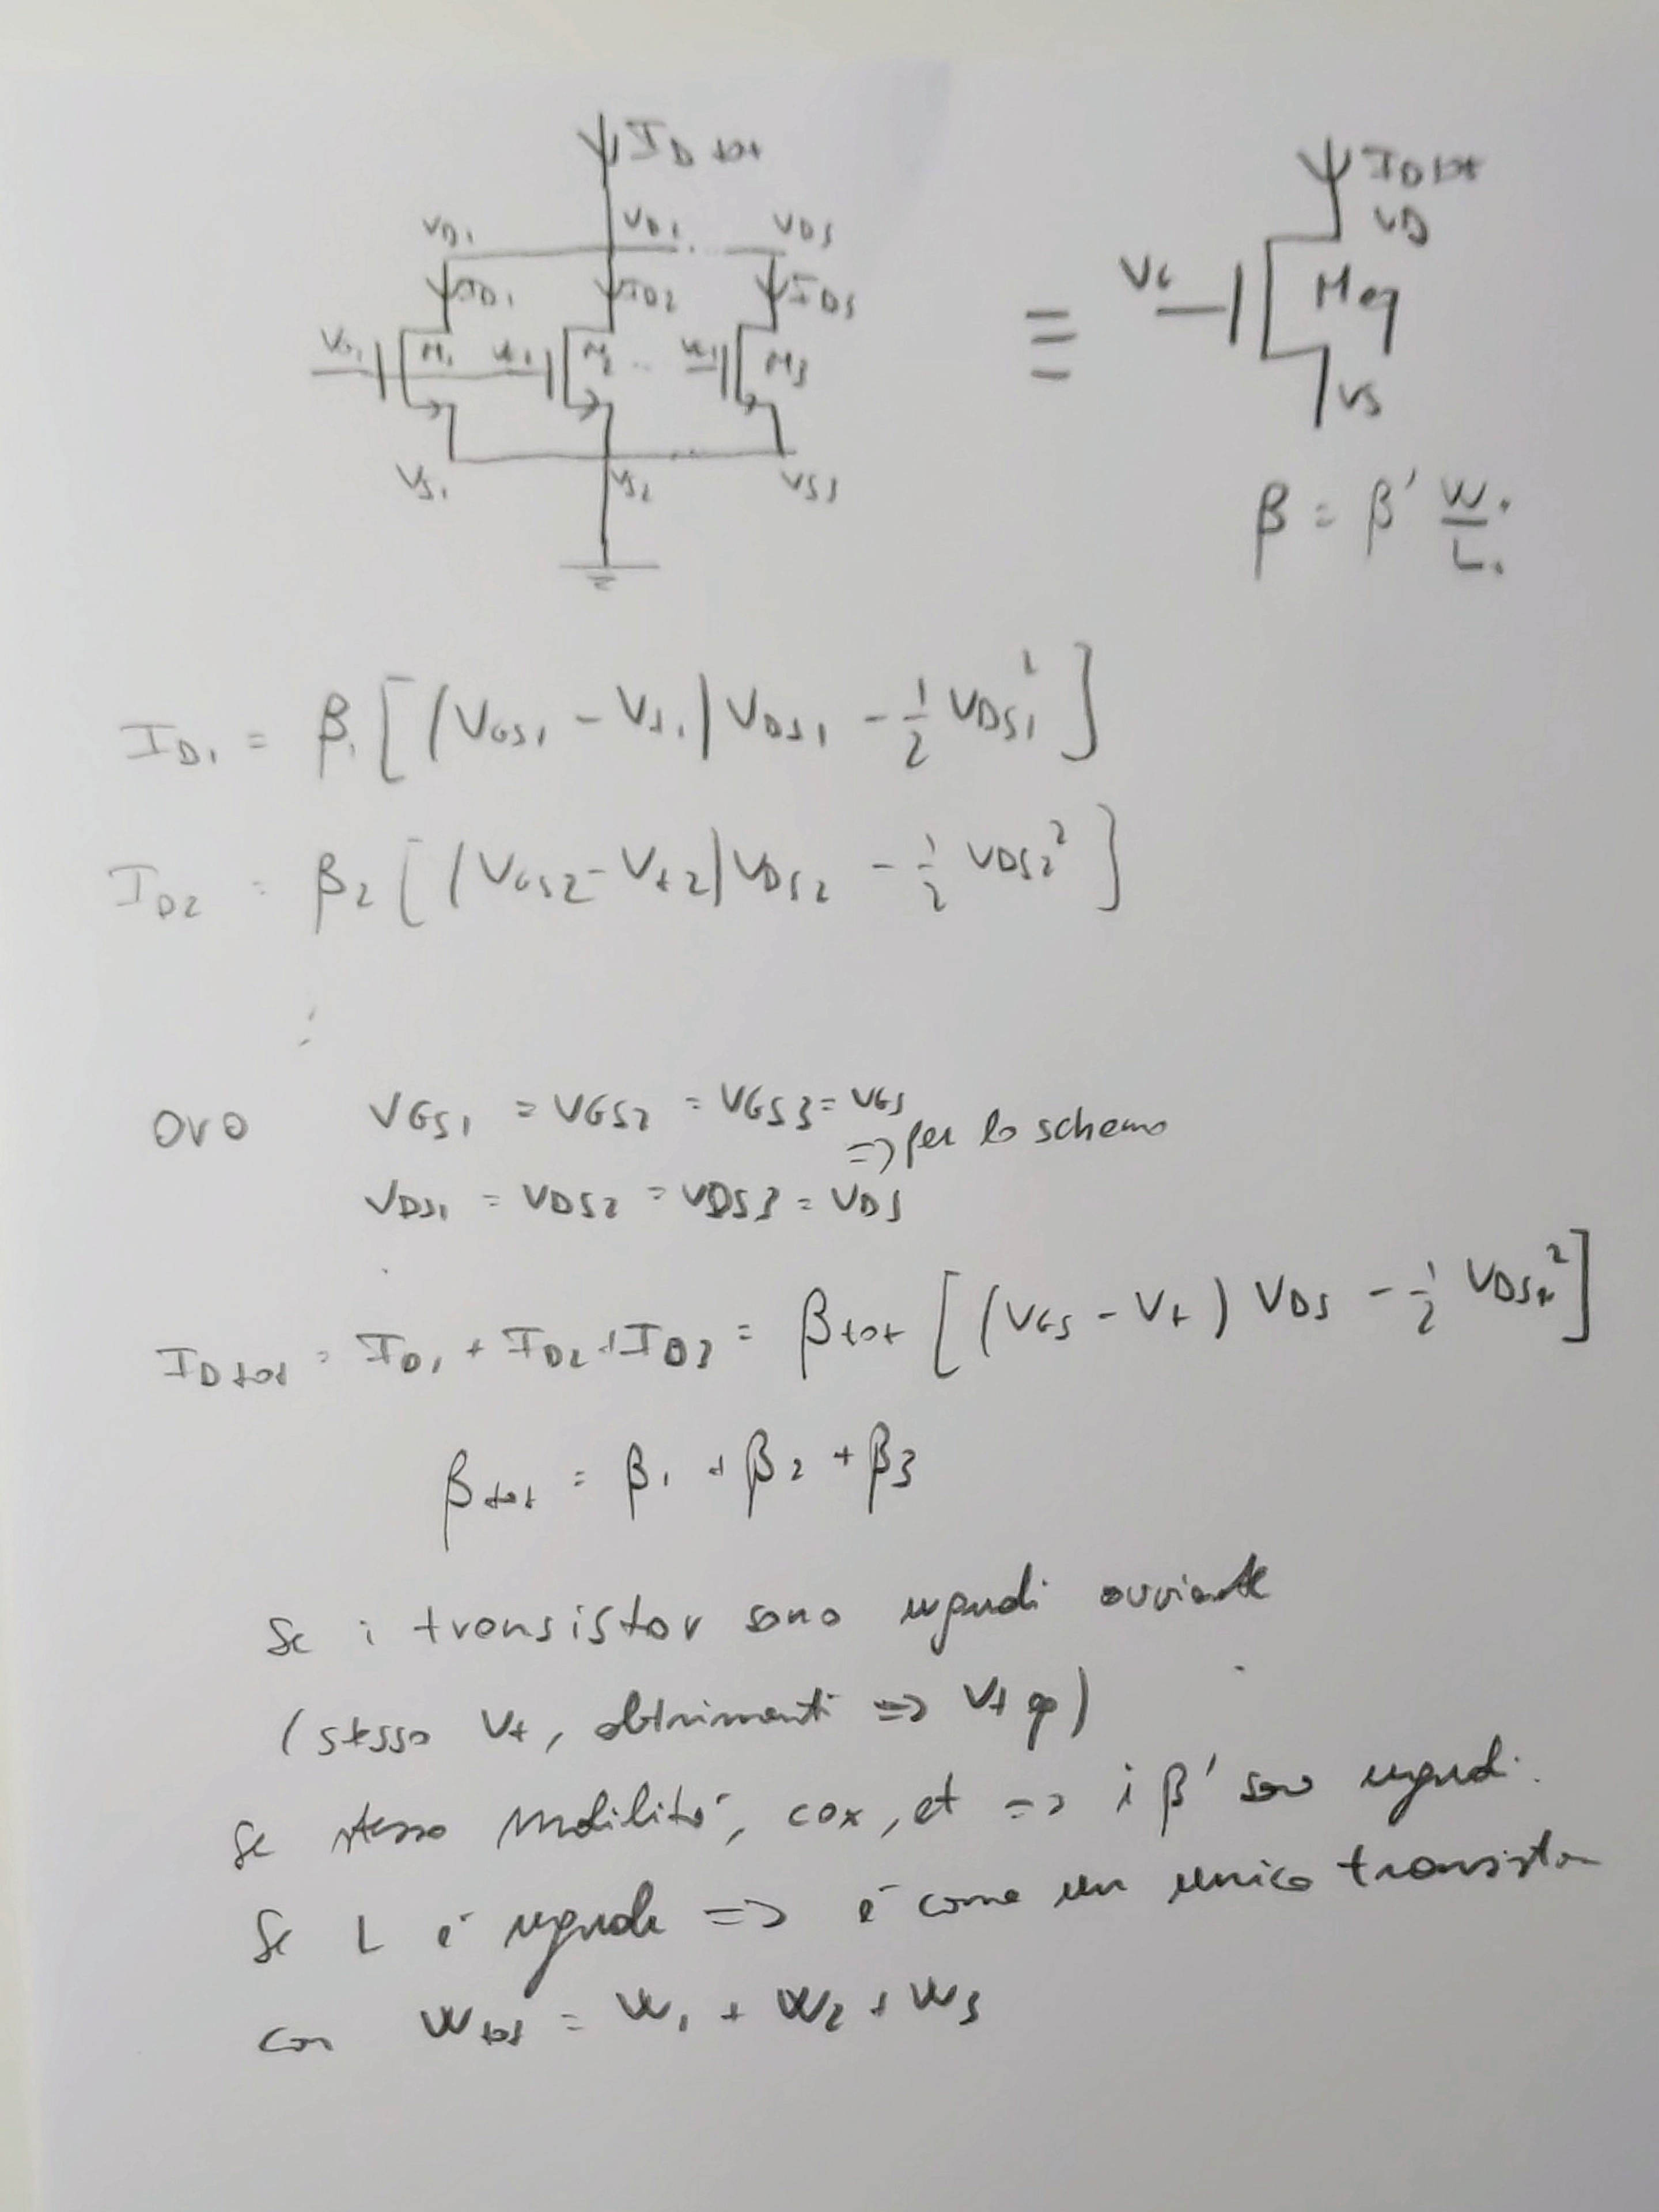 ID tot
ID tot
VD1 VD1 ... VD3
VD
ID1 ID2 ID3
VG Meq
M1 M2 ... M3
≡
VS
VS1 VS2 VS3
β = β' W. / L.
ID1 = β1 [(VGS1 - Vt1) VDS1 - 1/2 VDS1²]
ID2 = β2 [(VGS2 - Vt2) VDS2 - 1/2 VDS2²]
:
ora VGS1 = VGS2 = VGS3 = VGS
=> per lo schema
VDS1 = VDS2 = VDS3 = VDS
ID tot = ID1 + ID2 + ID3 = βtot [(VGS - Vt) VDS - 1/2 VDS²]
βtot = β1 + β2 + β3
Se i transistor sono uguali
(stesso Vt, altrimenti => Vt)
Se stessa mobilità, cox, et => i β' sono uguali.
Se L è uguale => è come un unico transistor
con Wtot = W1 + W2 + W3